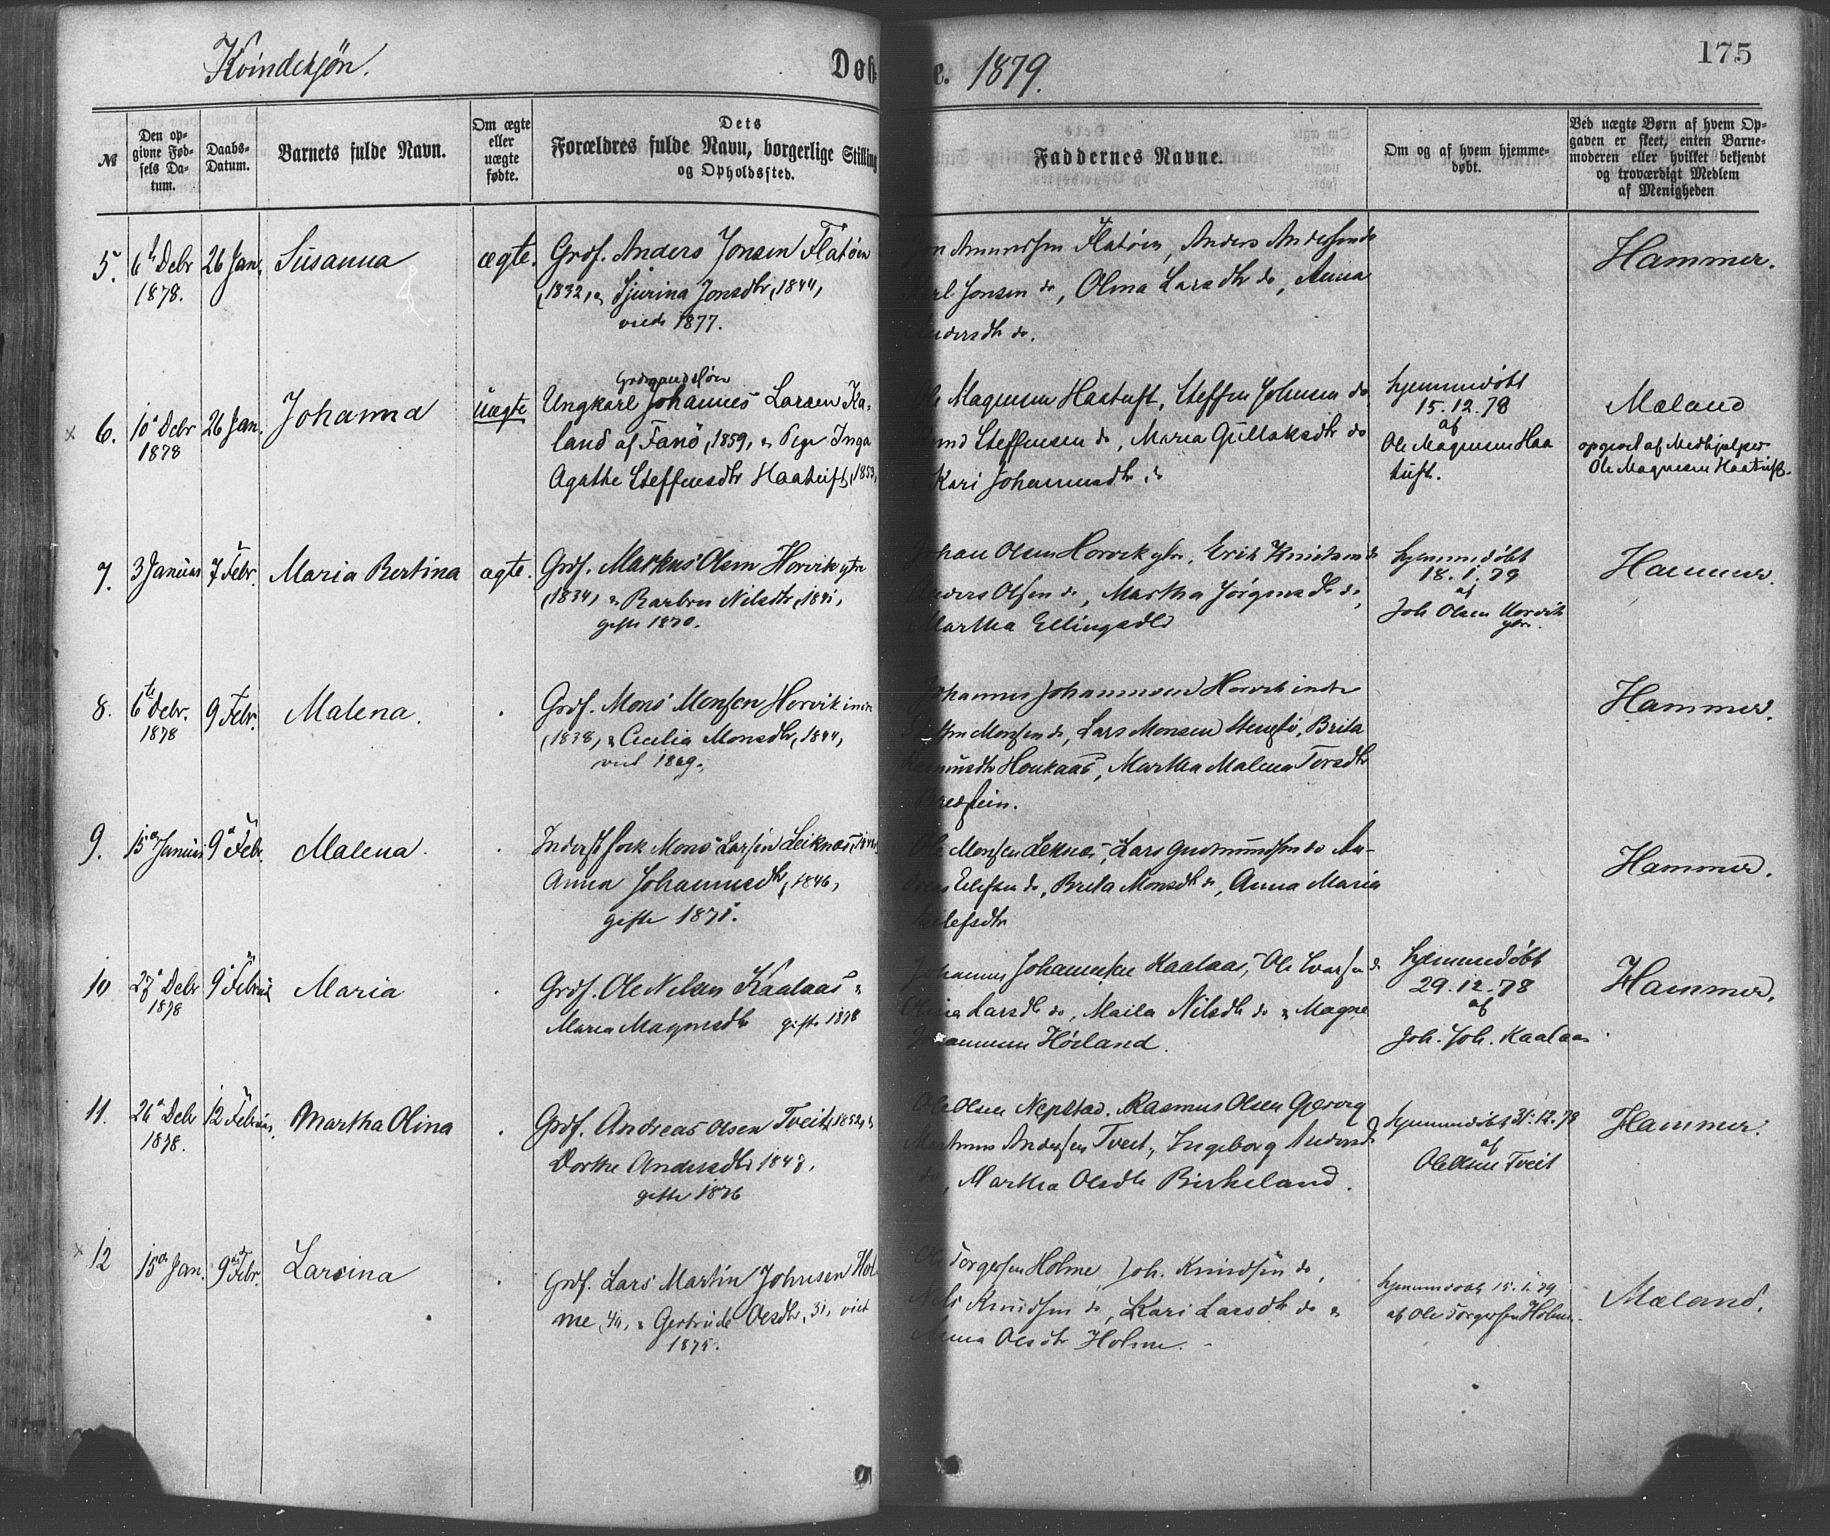 Kvindekjøn.
Døbte. 1879.
175
№
Den op-
givne Fød-
sels Da-
tum.
Daabs-
Datum.
Barnets fulde Navn.
Om ægte
eller
uægte
fødte.
Dets
Forældres fulde Navn, borgerlige Stilling
og Opholdssted.
Faddernes Navne.
Om og af hvem hjemme-
døbt.
Ved uægte Børn af hvem Op-
gaven er skeet, enten Barne-
moderen eller hvilket bekjendt
og troværdigt Medlem
af Menigheden
5. 6te Debr 26 Jan. Susanna ægte. Grdf. Anders Jonsen Flatøen
1878. (1832, & Sjurina Jonsdtr, 1844,
viede 1877.
Amundsen Flatøen, Anders Andersen do
Jonsen do, Olina Larsdtr do, Anna
Andersdtr do.
Hammer.
6. 10 Debr 26 Jan. Johanna uægte
1878
Grdmandssøn
Ungkarl Johannes Larsen Ka-
land af Fanø, 1859, & Pige Inga
Agathe Steffensdtr Haatuft, 1853,
Magnesen Haatuft, Steffen Johnsen do
Steffensen do, Maria Gullaksdtr do
& Kari Johannesdtr do
hjemmedøbt
15.12.78
af
Ole Magnesen Haa
tuft.
Mæland
opgivet af Medhjelper
Ole Magnesen Haatuft.
7. 3 Januar 7 Febr. Maria Bertina ægte. Grdf. Markus Olsen Horvik ytre
(1834, & Barbro Nilsdtr, 1841,
gifte 1870.
Johan Olsen Horvik ytre, Erik Knudsen do
Anders Olsen do, Martha Jørgensdtr do,
Martha Ellingsdtr
hjemmedøbt
18.1.79
af
Joh Olsen Horvik
ytre.
Hammer.
8. 6te Debr. 9 Febr. Malena. Grdf. Mons Monsen Horvik indre
1878 (1838, & Cecilia Monsdtr, 1844,
viet 1869.
Johannes Johannesen Horvik indre
Monsen do, Lars Monsen, Brita
Houkaas, Martha Malena Torsdtr
Bredstein.
Hammer.
9. 15 Januar 9 Febr. Malena. Inderst Mons Larsen Leiknæs,
Anna Johannesdtr, 1846,
gifte 1871.
Ole Monsen Leknæs, Lars Gudmundsen do An-
dreas do, Brita Monsdtr do, Anna Maria
Hammer.
10 27 Debr 9 Februar Maria Grdf. Ole Nilsen Kaalaas &
1878 Maria Magnesdtr gifte 1878
Johannes Johannesen Kaalaas, Ole Ivarsen do
Larsdtr do, Maila Nilsdtr do & Magne
Johannesen Hørland.
hjemmedøbt
29.12.78
af
Joh. Joh. Kaalaas
Hammer.
11. 26 Debr 12 Februar. Martha Olina Grdf. Andreas Olsen Tveit, 1852, &
1878. Dorthe Andersdtr 1847,
gifte 1876
Ole Olsen Nepstad. Rasmus Olsen Georg
Andersen Tveit, Ingeborg Andersdtr
do, Martha Olsdtr Birkeland.
hjemmedøbt 31.12.78
af
Ole Olsen Tveit
Hammer.
12 15 Jan. 9 Febr. Larsina Grdf. Lars Martin Johnsen Hol-
me, 40, & Gertrude Olsdtr, 31, viet
1875.
Ole Torgersen Holme, Joh. Knudsen do,
Nils Knudsen do, Kari Larsdtr do &
Anna Olsdtr Holme.
hjemmedøbt 15.1.79
af Ole Torgersen Holme.
Mæland.